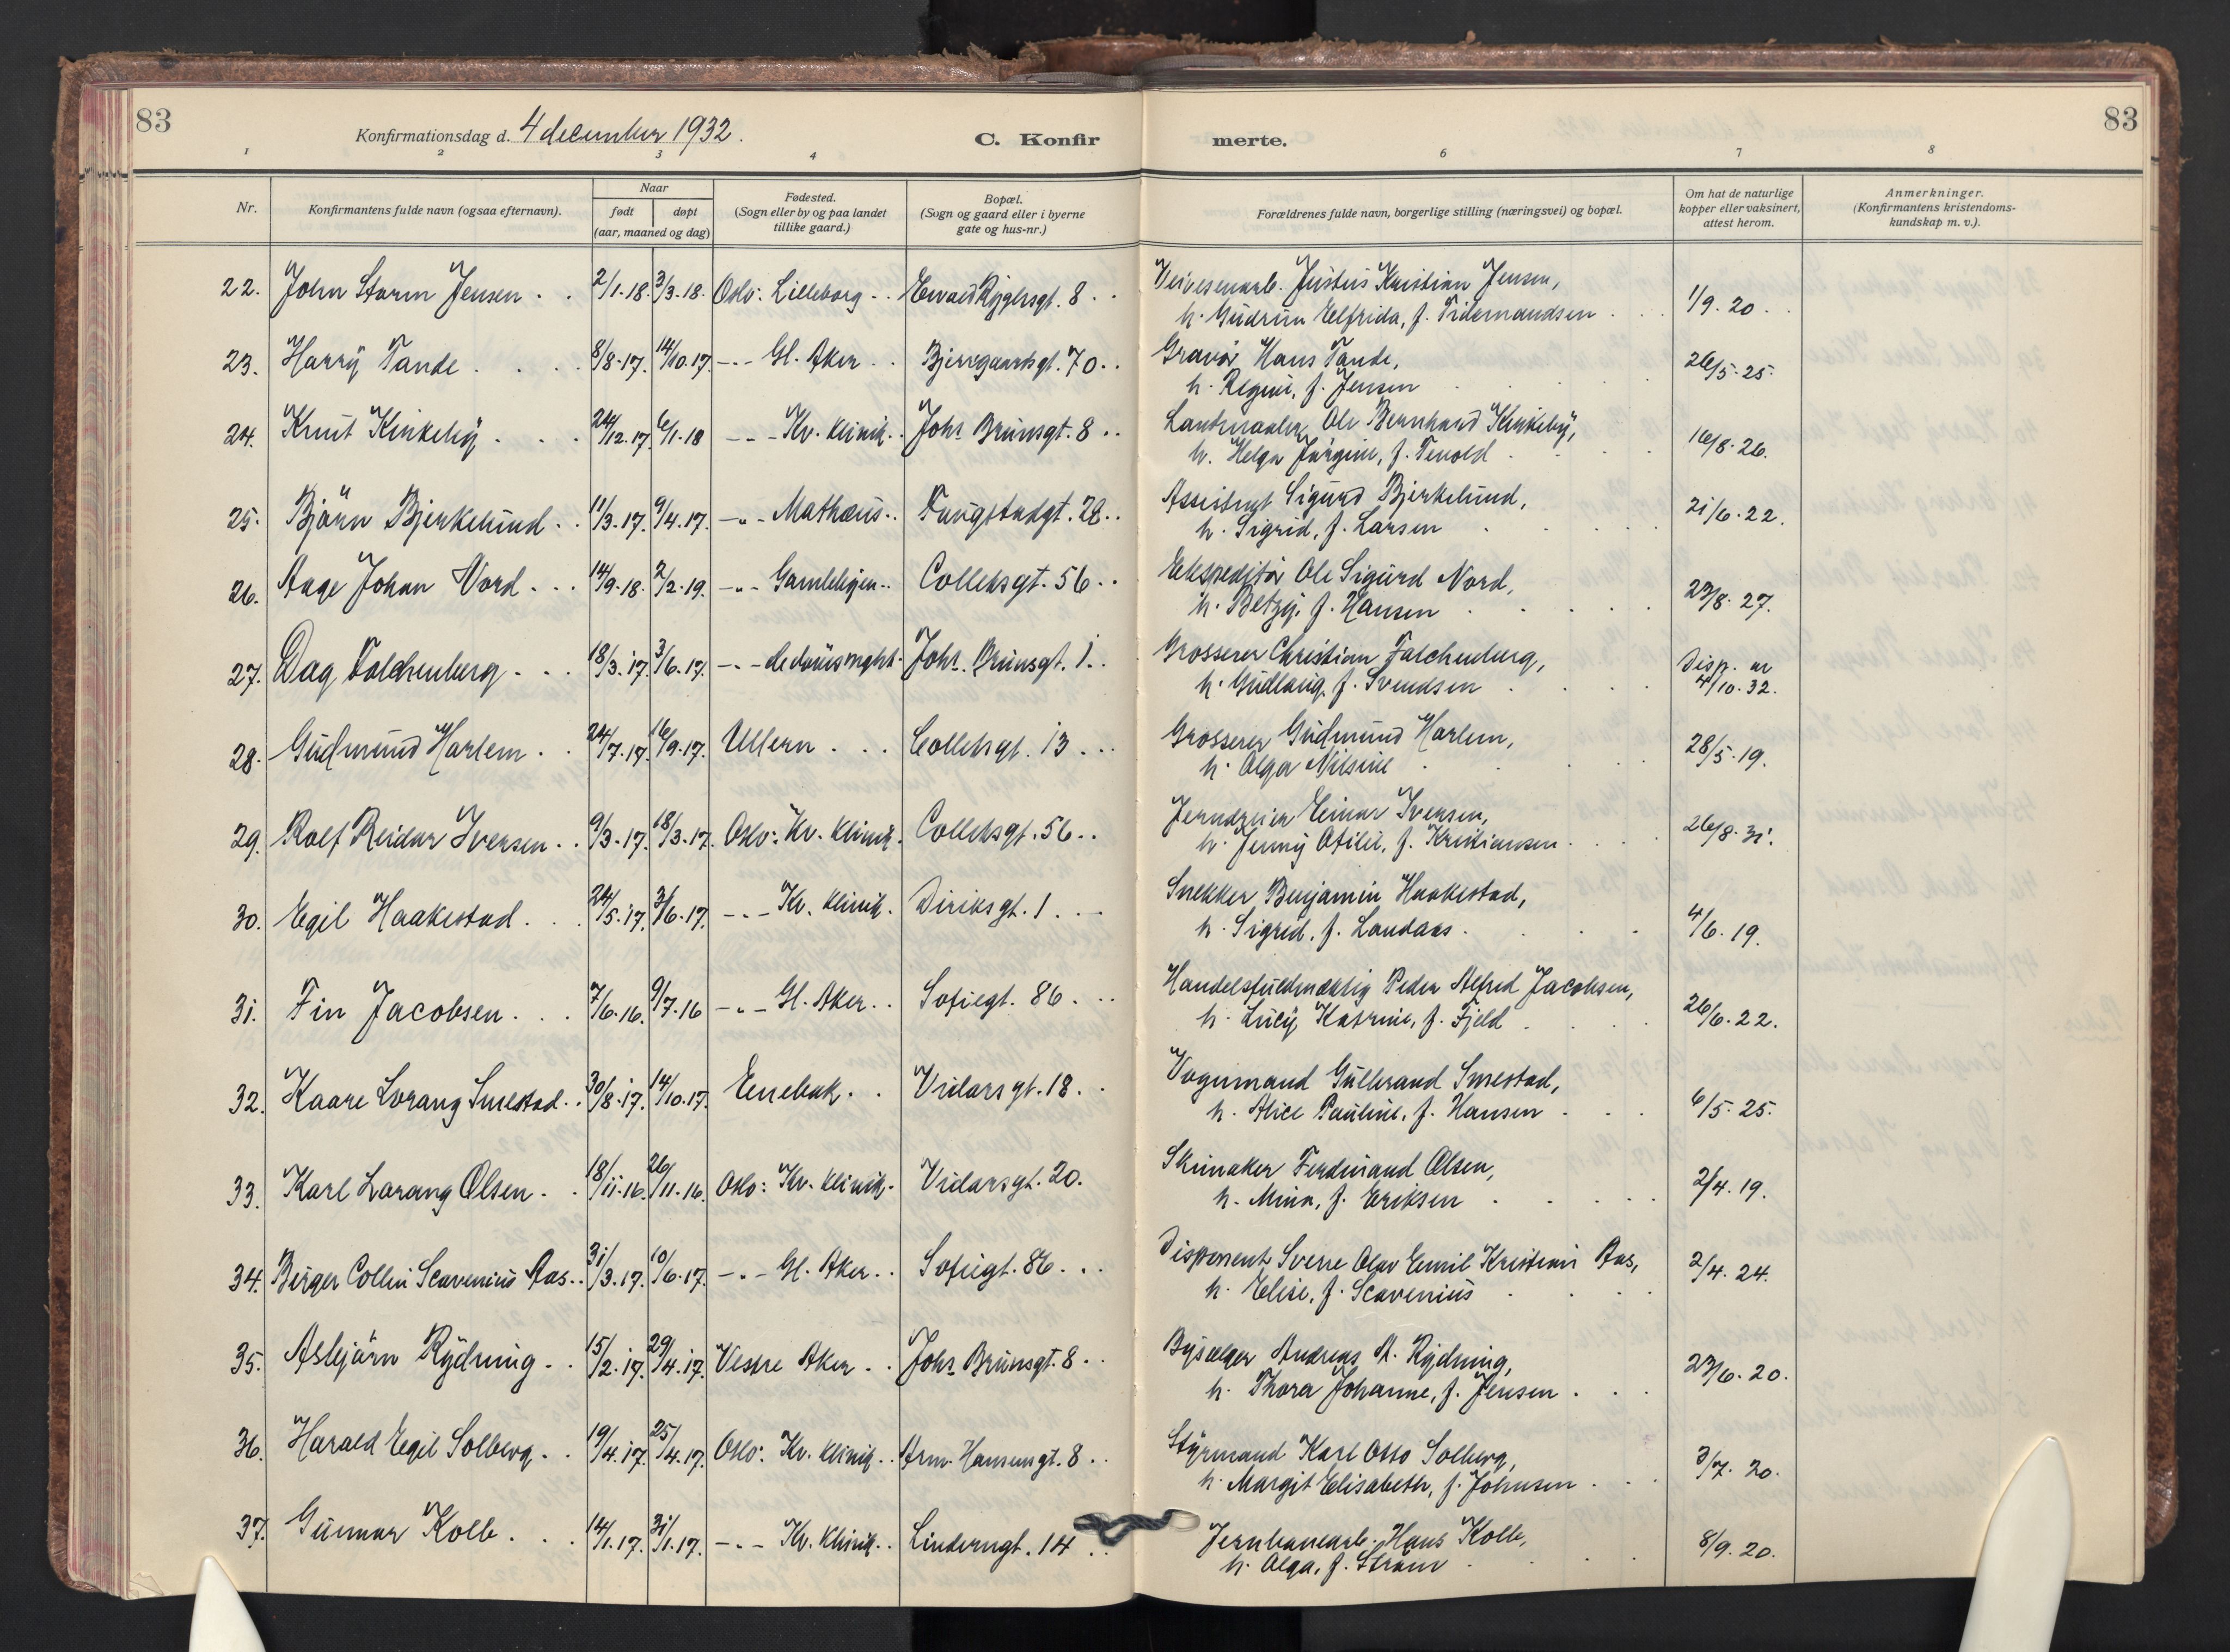 83
Konfirmationsdag d. 4 december 1932.
C. Konfir
merte.
83
1 2 3 4 6 7 8
Nr.
Konfirmantens fulde navn (ogsaa efternavn).
Naar
født
døpt
(aar, maaned og dag)
Fødested.
(Sogn eller by og paa landet
tillike gaard.)
Bopæl.
(Sogn og gaard eller i byerne
gate og hus-nr.)
Forældrenes fulde navn, borgerlige stilling (næringsvei) og bopæl.
Om hat de naturlige
kopper eller vaksinert,
attest herom.
Anmerkninger.
(Konfirmantens kristendoms-
kundskap m. v.).
22. John Storm Jensen . . 2/1.18. 3/3.18. Oslo: Lilleborg . . Ewald Ryghsgt. 8 . .
Veivesenarb. Justus Kristian Jensen,
h. Gudrun Elfrida, f. Tidemandsen . . . 1/9.20 . .
23. Harry Tande . . . . 8/8.17. 14/10.17. -"- Gl. Aker . . Bjerregaardsgt. 70 . .
Gravør Hans Tande,
h. Regine, f. Jensen . . . . 26/5.25.
24. Knut Kinkeby . . . 24/12.17. 6/1.18 -"- Kv. klinik . . Johs Brunsgt. 8 . .
Landmaaler Ole Bernhard Kinkeby,
h. Helga Jørgine, f. Tenold . . . . 16/8.26.
25. Bjørn Bjerkelund . . 11/3.17. 9/4.17. -"- Mathæus . . Faugstadgt. 28 . .
Assistent Sigurd Bjerkelund,
h. Sigrid, f. Larsen . . . . 21/6.22.
26. Aage Johan Nord . . . 14/9.18. 2/2.19. -"- Gamlebyen . . Colletsgt. 56 . .
Ekspeditør Ole Sigurd Nord,
h. Betzy, f. Hansen . . . . 23/8.27.
27. Dag Falchenberg . . . 18/3.17. 3/6.17. -"- Johs. Brunsgt. 1 . .
Grosserer Christian Falchenberg,
h. Gudlaug, f. Svendsen . . . . Disp. av
4/10.32.
28. Gudmund Harlem . . 24/7.17. 16/9.17. Ullern . . . Colletsgt. 13 . . .
Grosserer Gudmund Harlem,
h. Olga Nilsine . . . . 28/5.19.
29. Rolf Reidar Iversen . . 9/3.17. 18/3.17. Oslo: Kv. klinik . Colletsgt. 56 . .
Jerndreier Einar Iversen,
h. Jenny Otilie, f. Kristiansen . . . 26/8.31.
30. Egil Haakestad . . . 24/5.17. 3/6.17. -"- Kv. klinik . Diriksgt. 1 . . .
Snekker Benjamin Haakestad,
h. Sigrid, f. Landaas . . . . 4/6.19.
31. Fin Jacobsen . . . 7/6.16. 9/7.16 -"- Gl. Aker . . Sofiegt. 86 . . .
Handelsfuldmægtig Peder Alfred Jacobsen,
h. Lucy Katrine, f. Fjeld . . . . 26/6.22.
32. Kaare Lorang Smestad . . 30/8.17. 14/10.17. Enebak . . Vidarsgt. 18 . .
Vognmand Gulbrand Smestad,
h. Alice Pauline, f. Hansen . . . 6/5.25.
33. Karl Lorang Olsen . . 18/11.16. 26/11.16. Oslo: Kv. klinik . Vidarsgt. 20.
Skomaker Ferdinand Olsen,
h. Mina, f. Eriksen . . . . 2/4.19.
34. Birger Collin Scavenius Aas . . 31/3.17. 10/6.17. -"- Gl. Aker . . Sofiegt. 86 . . .
Disponent Sverre Olav Emil Kristian Aas,
h. Elise, f. Scavenius . . . . 2/4.24.
35. Asbjørn Rydning . . 15/2.17. 29/4.17. Vestre Aker . . Johs Brunsgt. 8 . .
Bysælger Andreas A. Rydning,
h. Thora Johanne, f. Jensen . . . 23/6.20.
36. Harald Egil Solberg . . 19/4.17. 25/4.17. Oslo: Kv. klinik . . Arm. Hansensgt. 8 . .
Styrmand Karl Otto Solberg,
h. Margit Elisabeth, f. Johnsen . . . 3/7.20.
37. Gunnar Kolb . . . 14/1.17. 31/1.17. -"- Kv. klinik . . Lindernsgt. 14 . .
Jernbanearb. Hans Kolb,
h. Olga, f. Strøm . . . . 8/9.20.